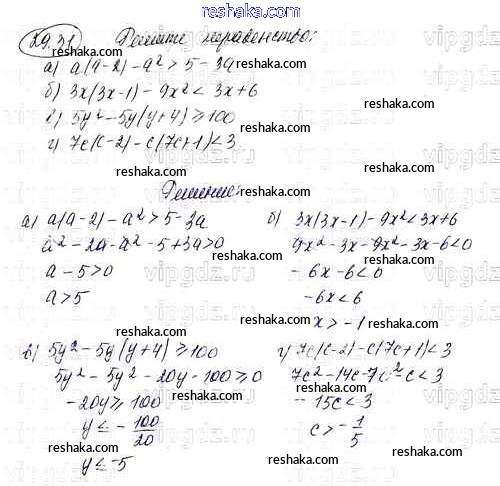 www.reshaka.com
29.31 Решите неравенство:
а) a(a-2) - a² > 5 - 3a
б) 3x(3x-1) - 9x² < 3x+6
в) 5y² - 5y(y+4) ≥ 100
г) 7c(c-2) - c(7c+1) < 3
Решение:
а) a(a-2) - a² > 5 - 3a
a² - 2a - a² - 5 + 3a > 0
a - 5 > 0
a > 5
б) 3x(3x-1) - 9x² < 3x+6
9x² - 3x - 9x² - 3x - 6 < 0
- 6x - 6 < 0
- 6x < 6
x > -1
в) 5y² - 5y(y+4) ≥ 100
5y² - 5y² - 20y - 100 ≥ 0
- 20y ≥ 100
y ≤ - 100/20
y ≤ -5
г) 7c(c-2) - c(7c+1) < 3
7c² - 14c - 7c² - c < 3
- 15c < 3
c > - 1/5
www.reshaka.com